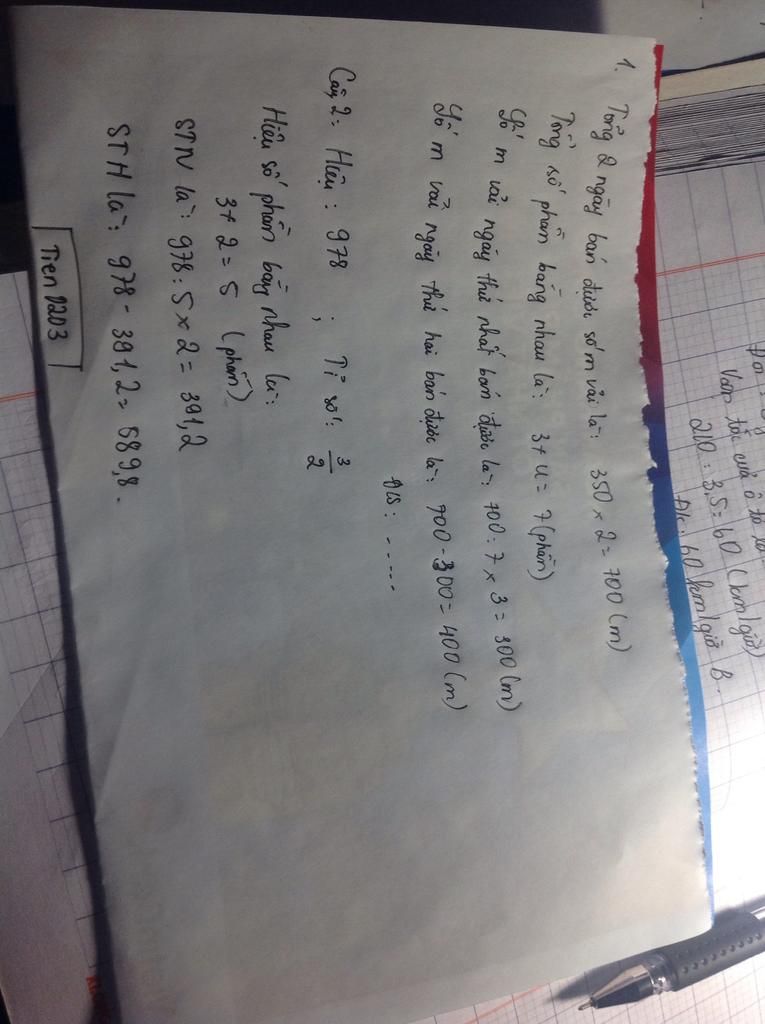 Vận tốc của ô tô là
210 : 3,5 = 60 (km/giờ)
Đ/s: 60 km/giờ B
1. Tổng 2 ngày bán được số m vải là: 350 x 2 = 700 (m)
Tổng số phần bằng nhau là: 3 + 4 = 7 (phần)
Số m vải ngày thứ nhất bán được là: 700 : 7 x 3 = 300 (m)
Số m vải ngày thứ hai bán được là: 700 - 300 = 400 (m)
ĐS: - - - - -
Câu 2: Hiệu : 978 ; Tỉ số: 3/2
Hiệu số phần bằng nhau là:
3 + 2 = 5 (phần)
STN là: 978 : 5 x 2 = 391,2
STH là: 978 - 391,2 = 589,8.
Tien 0203